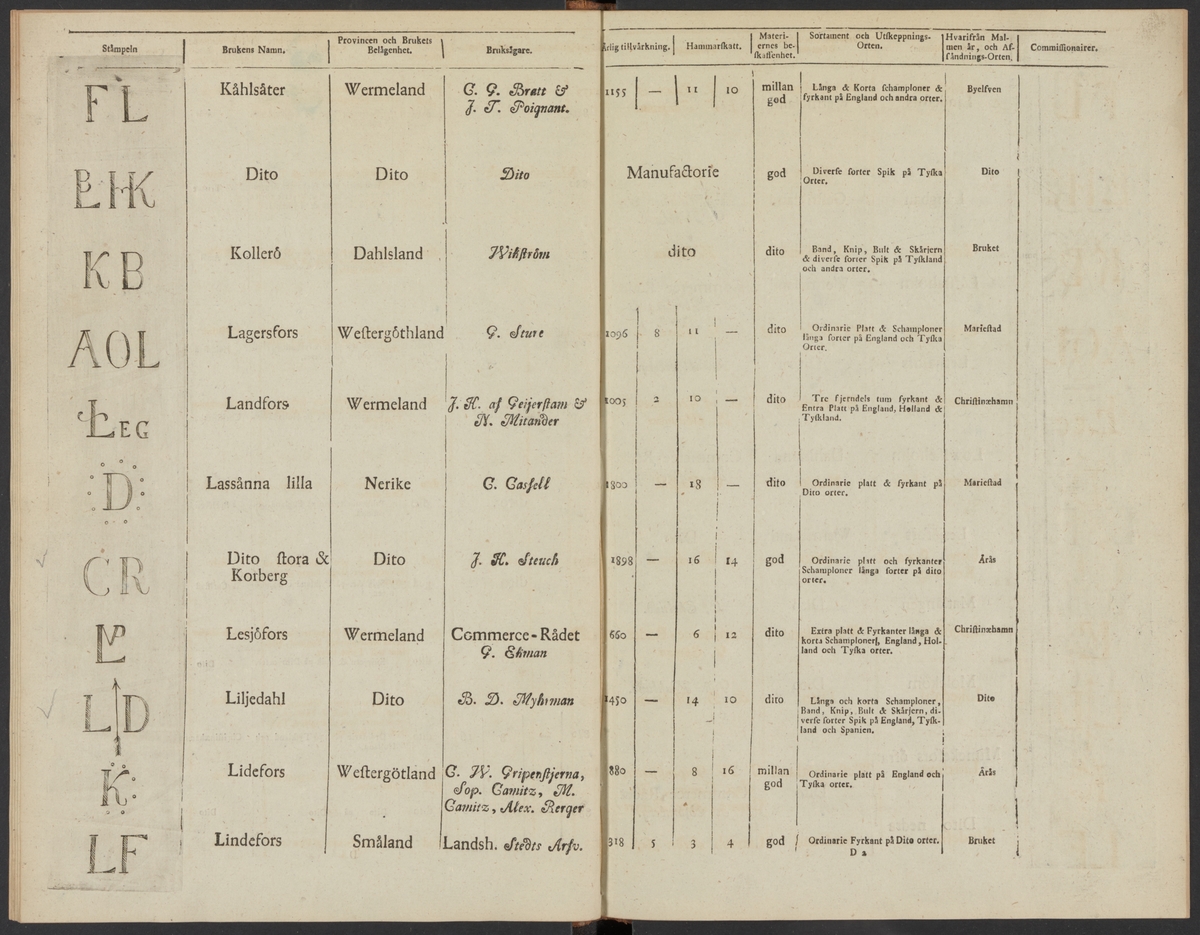 Stämpeln | Brukens Namn. | Provincen och Brukets Belägenhet. | Bruksägare. | Årlig tillvårkning. | Hammarſkatt. | Materiernes beſkaffenhet. | Sortament och Utſkeppnings-Orten. | Hvarifrån Malmen år, och Afſåndnings-Orten. | Commiſſionairer.
FL | Kåhlsåter | Wermeland | C. G. Bratt & J. T. Poignant. | 1155 | — | 11 | 10 | millan god | Långa & Korta ſchamploner & fyrkant på England och andra orter. | Byelfven
Dito | Dito | Dito | Manufactorie | god | Diverſe ſorter Spik på Tyſka Orter. | Dito
KB | Kolleró | Dahlsland | Wikſtröm | dito | dito | Band, Knip, Bult & Skårjern & diverſe ſorter Spik på Tyſkland och andra orter. | Bruket
AOL | Lagersfors | Weſtergöthland | G. Sture | 1096 | 8 | 11 | — | dito | Ordinarie Platt & Schamploner långa ſorter på England och Tyſka Orter. | Marieſtad
LEG | Landfors | Wermeland | J. H. af Geijerſtam & N. Mitander | 1005 | 2 | 10 | — | dito | Tre fjerndels tum fyrkant & Extra Platt på England, Holland & Tyſkland. | Chriſtinæhamn
D | Lassånna lilla | Nerike | C. Casſell | 1800 | — | 18 | — | dito | Ordinarie platt & fyrkant på Dito orter. | Marieſtad
CR | Dito ſtora & Korberg | Dito | J. H. Steuch | 1898 | — | 16 | 14 | god | Ordinarie platt och fyrkanter Schamploner långa ſorter på dito orter. | Årås
Lesjöfors | Wermeland | Commerce-Rådet G. Ekman | 660 | — | 6 | 12 | dito | Extra platt & Fyrkanter långa & korta Schamploner, England, Holland och Tyſka orter. | Chriſtinæhamn
LD | Liljedahl | Dito | B. D. Myhrman | 1450 | — | 14 | 10 | dito | Långa och korta Schamploner, Band, Knip, Bult & Skårjern, diverſe ſorter Spik på England, Tyſkland och Spanien. | Dito
K | Lidefors | Weſtergötland | C. W. Gripenſtjerna, Sop. Camitz, M. Camitz, Alex. Rerger | 880 | — | 8 | 16 | millan god | Ordinarie platt på England och Tyſka orter. | Årås
LF | Lindefors | Småland | Landsh. Stedts Arfv. | 318 | 5 | 3 | 4 | god | Ordinarie Fyrkant på Dito orter. | Bruket
D 2